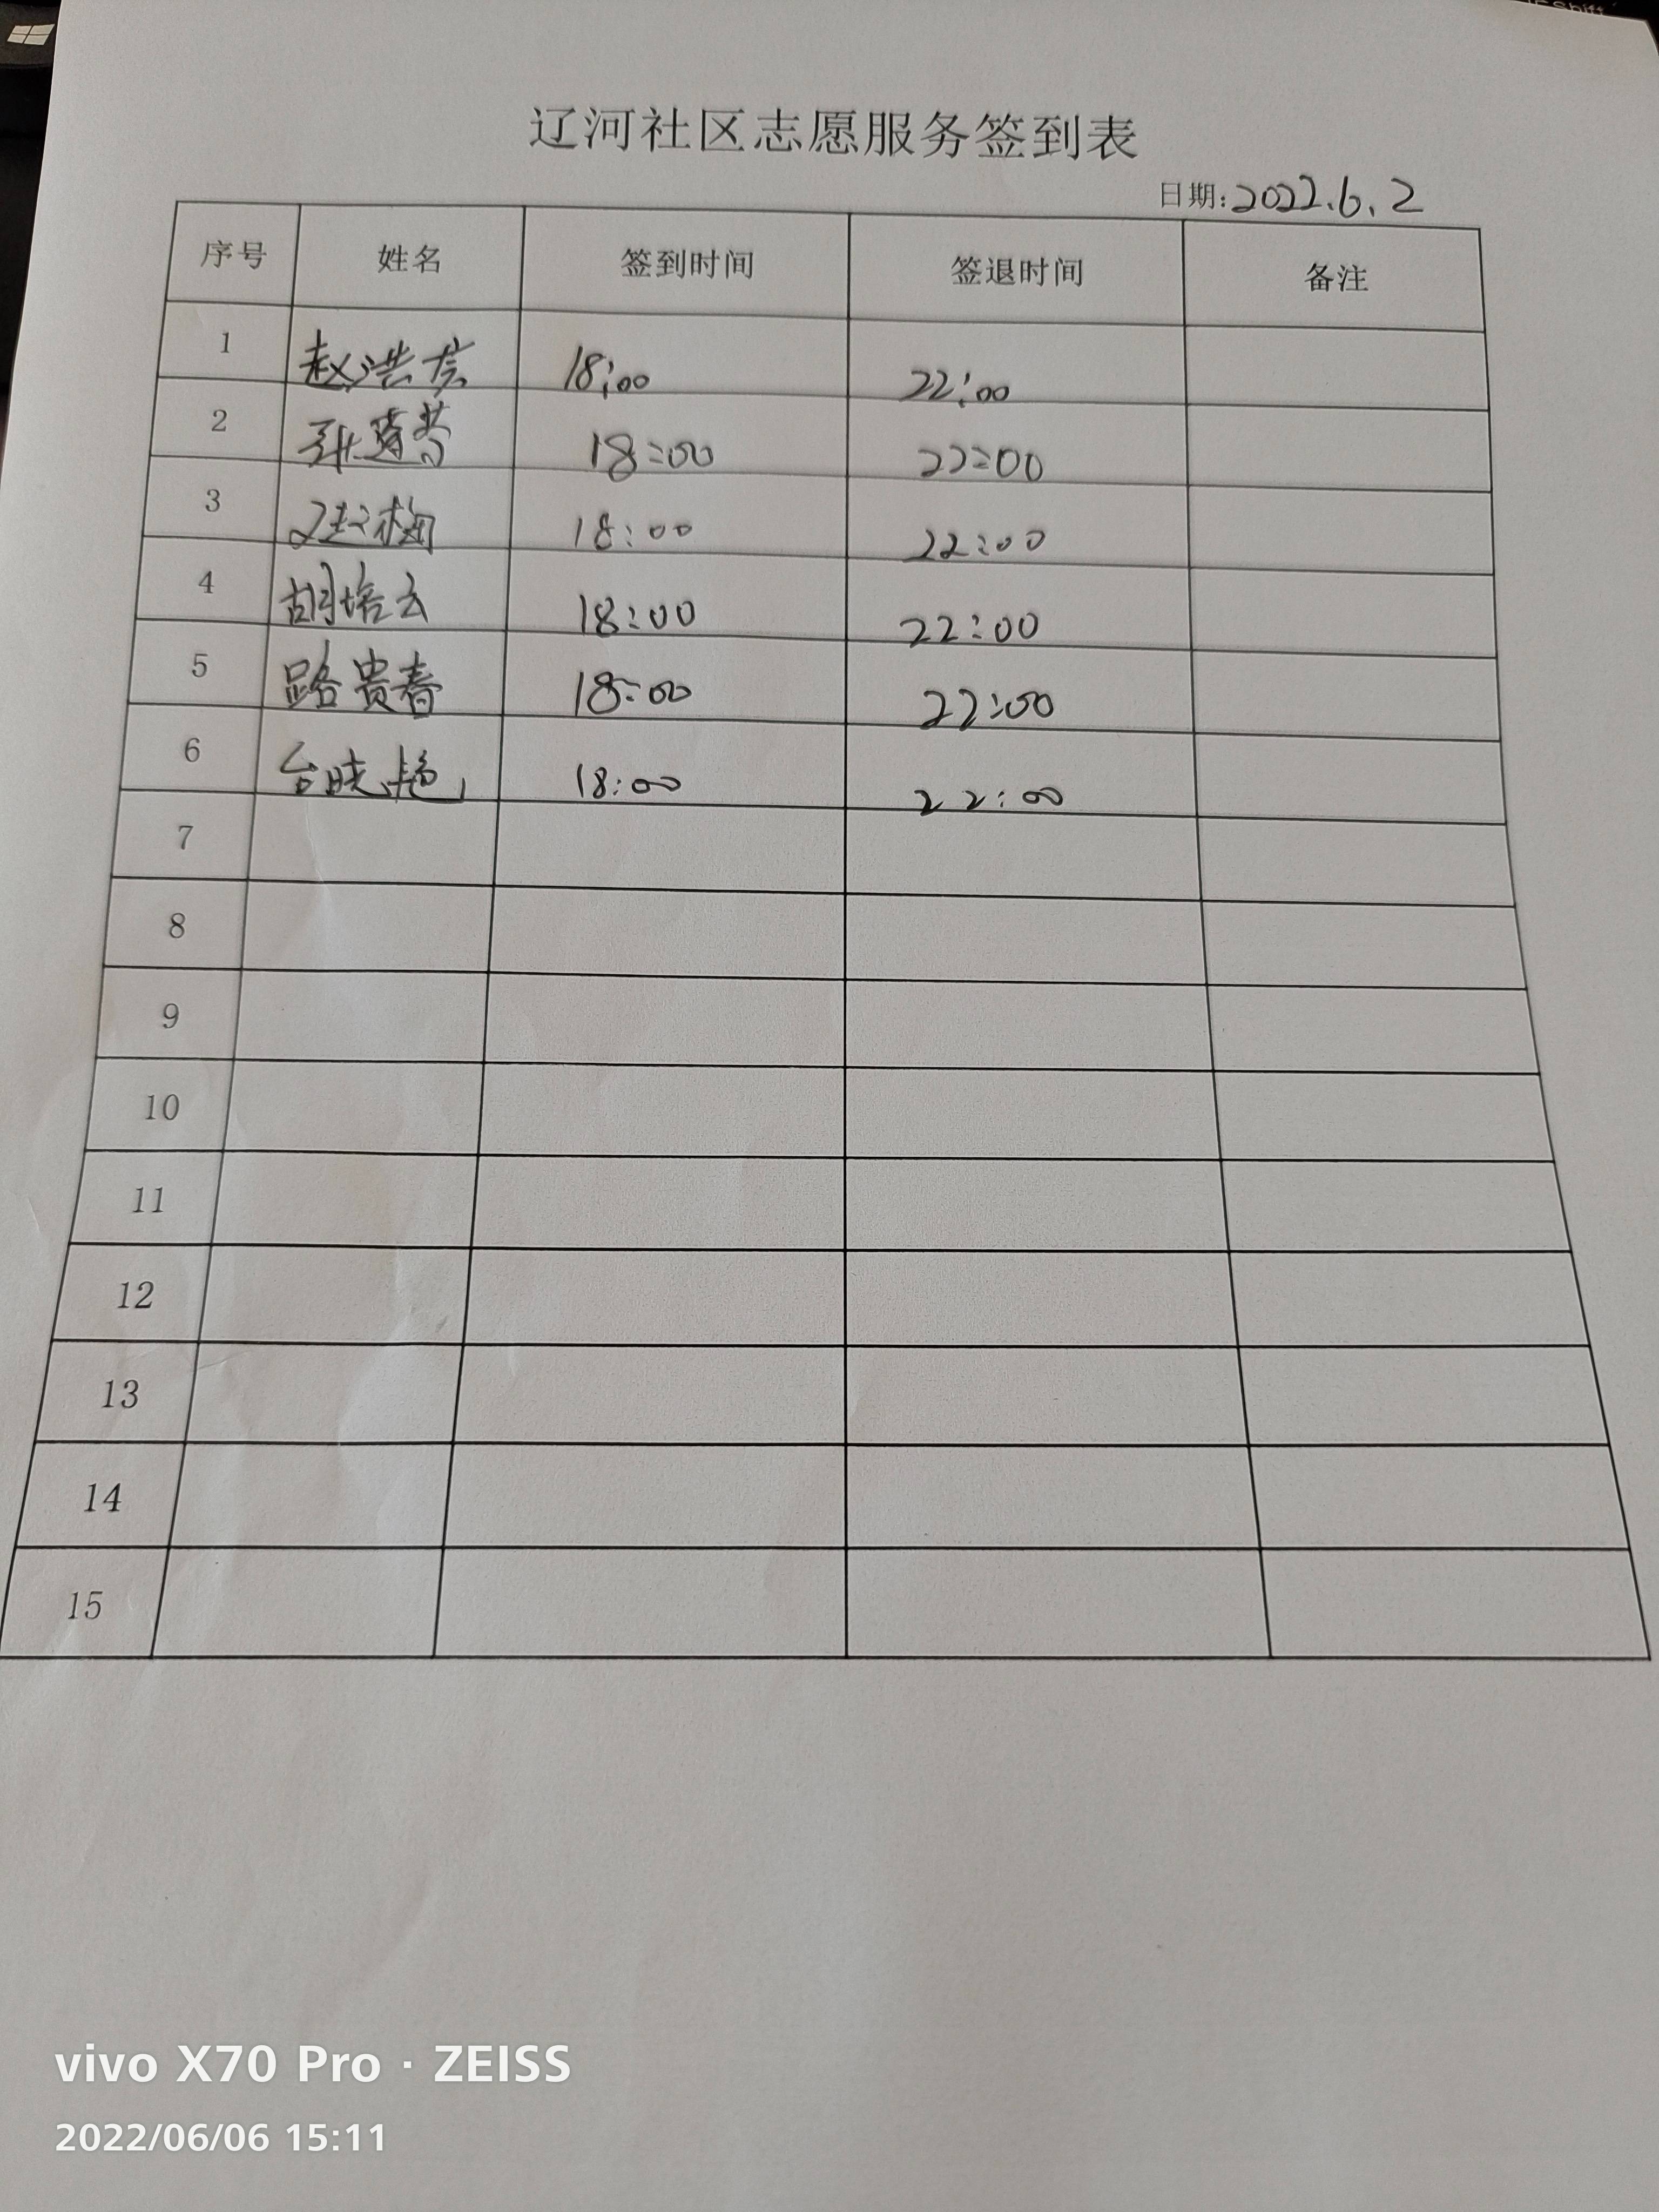 辽河社区志愿服务签到表
日期:2022.6.2
序号 姓名 签到时间 签退时间 备注
1 赵洪 18:00 22:00
2 张 18:00 22:00
3 梅 18:00 22:00
4 胡培云 18:00 22:00
5 路贵春 18:00 22:00
6 台晓艳 18:00 22:00
7
8
9
10
11
12
13
14
15
vivo X70 Pro · ZEISS
2022/06/06 15:11